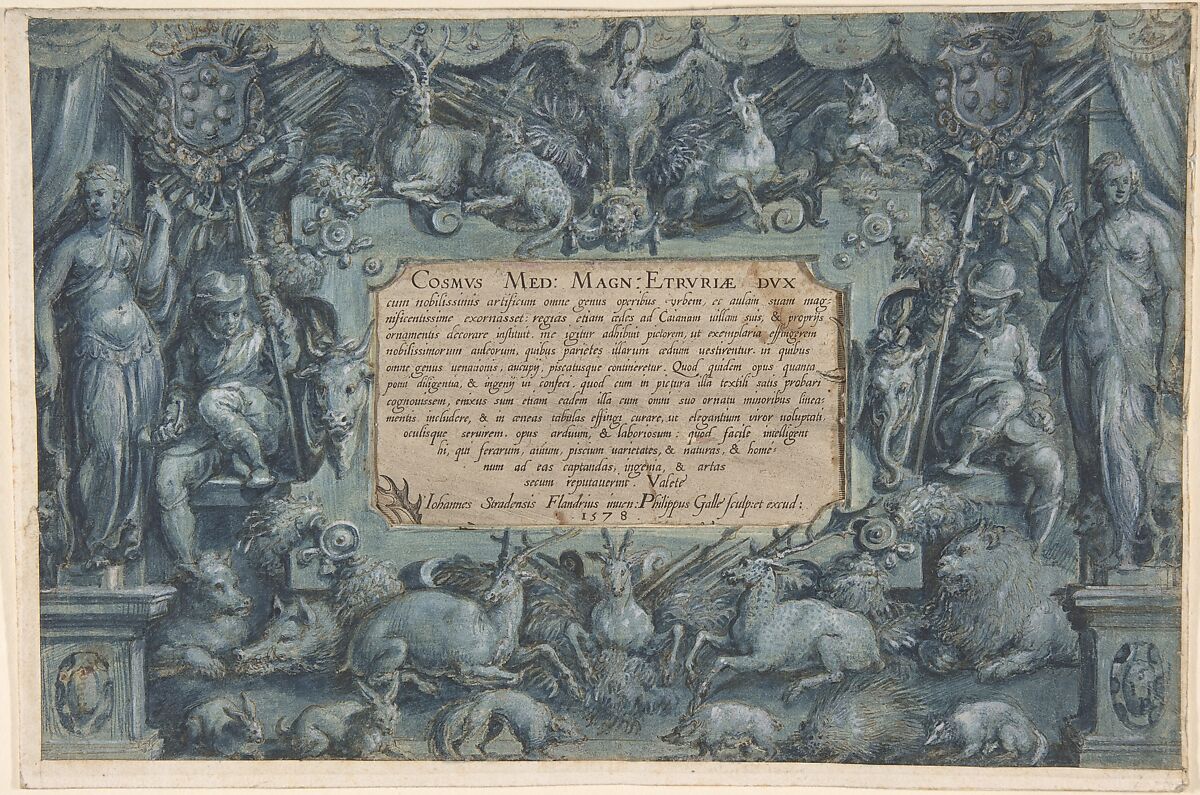 COSMVS MED: MAGN: ETRVRIÆ DVX
cum nobilissimis artificum omne genus operibus vrbem, et aulam suam mag¬
nificentissime exornasset: regias etiam ædes ad Caianam uillam suis, & proprijs
ornamentis decorare instituit. me igitur adhibuit pictorem, ut exemplaria effingerem
nobilissimorum auleorum, quibus parietes illarum ædium uestirentur. in quibus
omne genus uenationis, aucupij, piscatusque contineretur. Quod quidem opus quanta
potui diligentia, & ingenij ui confeci. quod cum in pictura illa textili satis probari
cognouissem, enixus sum etiam eadem illa cum omni suo ornatu minoribus linea¬
mentis includere, & in æneas tabulas effingi curare, ut elegantium viror uoluptati,
oculisque seruirem. opus arduum, & laboriosum: quod facile intelligent
hi, qui ferarum, auium, piscium varietates, & naturas, & homi¬
num ad eas captandas, ingenia, & artas
secum reputauerint. Valete
Iohannes Stradensis Flandrius inuen: Philippus Galle sculp: et excud:
1578